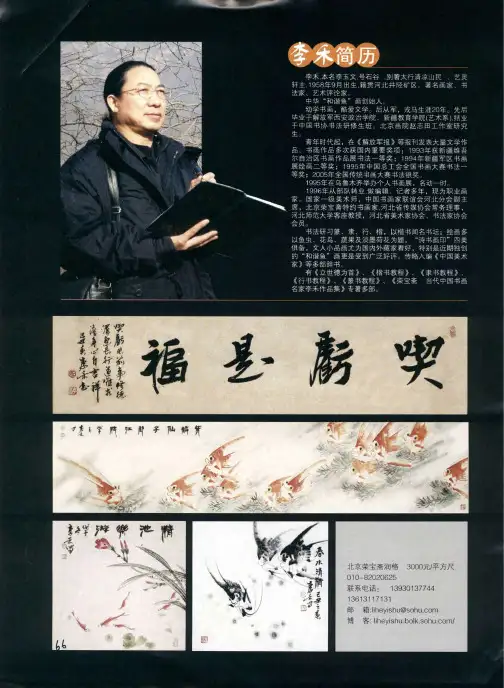 李禾简历
李禾,本名李玉文,号石谷,别署太行清凉山民,艺灵
轩主,1958年9月出生,籍贯河北井陉矿区。著名画家、书
法家、艺术评论家。
中华“和谐鱼”画创始人。
幼学书画,酷爱文学。后从军,戎马生涯20年。先后
毕业于解放军西安政治学院、新疆教育学院(艺术系),结业
于中国书协书法研修生班、北京画院赵志田工作室研究
生。
青年时代起,在《解放军报》等报刊发表大量文学作
品。书画作品多次获国内重要奖项:1993年获新疆维吾
尔自治区书画作品展书法一等奖;1994年新疆军区书画
展绘画二等奖;1995年中国总工会全国书画大赛书法一
等奖;2005年全国传统书画大赛书法银奖。
1995年在乌鲁木齐举办个人书画展,名动一时。
1996年从部队转业,做编辑、记者多年,现为职业画
家。国家一级美术师,中国书画家联谊会河北分会副主
席,北京荣宝斋特约书画家,河北省传媒协会常务理事,
河北师范大学客座教授,河北省美术家协会、书法家协会
会员。
书法研习篆、隶、行、楷,以楷书闻名书坛;绘画多
以鱼虫、花鸟、蔬果及泼墨荷花为题,“诗书画印”四美
俱备。文人小品画尤为国内外藏家看好,特别是近期独创
的“和谐鱼”画更是受到广泛好评。传略入编《中国美术
家》等多部辞书。
有《立世德为首》、《楷书教程》、《隶书教程》、
《行书教程》、《篆书教程》、《荣宝斋 当代中国书画
名家李禾作品集》专著多部。
喫虧是福
春水清闲
清池乐游
北京荣宝斋润格 3000元/平方尺
010-82020625
联系电话: 13930137744
13613117131
邮 箱:liheyishu@sohu.com
博 客:liheyishu.bolk.sohu.com/
66